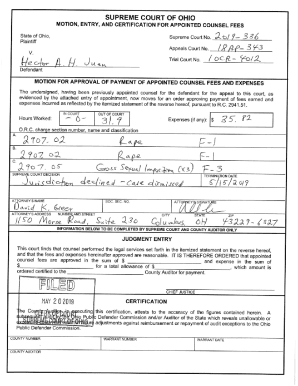 SUPREME COURT OF OHIO
MOTION, ENTRY, AND CERTIFICATION FOR APPOINTED COUNSEL FEES
State of Ohio,
Plaintiff
v.
Hector A H. Juan
Defendant
Supreme Court No. 2019-336
Appeals Court No. 18AP-343
Trial Court No. 10CR-4012
MOTION FOR APPROVAL OF PAYMENT OF APPOINTED COUNSEL FEES AND EXPENSES
The undersigned, having been previously appointed counsel for the defendant for the appeal to this court, as
evidenced by the attached entry of appointment, now moves for an order approving payment of fees earned and
expenses incurred as reflected by the itemized statement of the reverse hereof, pursuant to R.C. 2941.51.
Hours Worked:
IN COURT
-0-
OUT OF COURT
31.9
Expenses (if any): $ 35.82
O.R.C. charge section number, name and classification
2907.02 Rape F-1
2907.02 Rape F-1
2907.05 Gross Sexual Imposition (x3) F-3
SUPREME COURT DECISION
Jurisdiction declined - case dismissed
TERMINATION DATE
5/15/2019
ATTORNEY'S NAME
David K. Greer
SOC. SEC. NO.
ATTORNEY'S SIGNATURE
ATTORNEY'S ADDRESS
NUMBER AND STREET
CITY
STATE
ZIP
1150 Morse Road, Suite 230 Columbus OH 43229-6327
INFORMATION BELOW TO BE COMPLETED BY SUPREME COURT AND COUNTY AUDITOR ONLY
JUDGMENT ENTRY
This court finds that counsel performed the legal services set forth in the itemized statement on the reverse hereof,
and that the fees and expenses hereinafter approved are reasonable. IT IS THEREFORE ORDERED that appointed
counsel fees are approved in the sum of $ and expense in the sum of
$ for a total allowance of $ which amount is
ordered certified to the County Auditor for payment.
FILED
CHIEF JUSTICE
MAY 20 2019
CERTIFICATION
SUPREME COURT OF OHIO
The County Auditor, in executing this certification, attests to the accuracy of the figures contained herein. A
Ohio Public Defender Commission and/or Auditor of the State which reveals unallowable or
adjustments against reimbursement or repayment of audit exceptions to the Ohio
Public Defender Commission.
COUNTY NUMBER
WARRANT NUMBER
WARRANT DATE
COUNTY AUDITOR